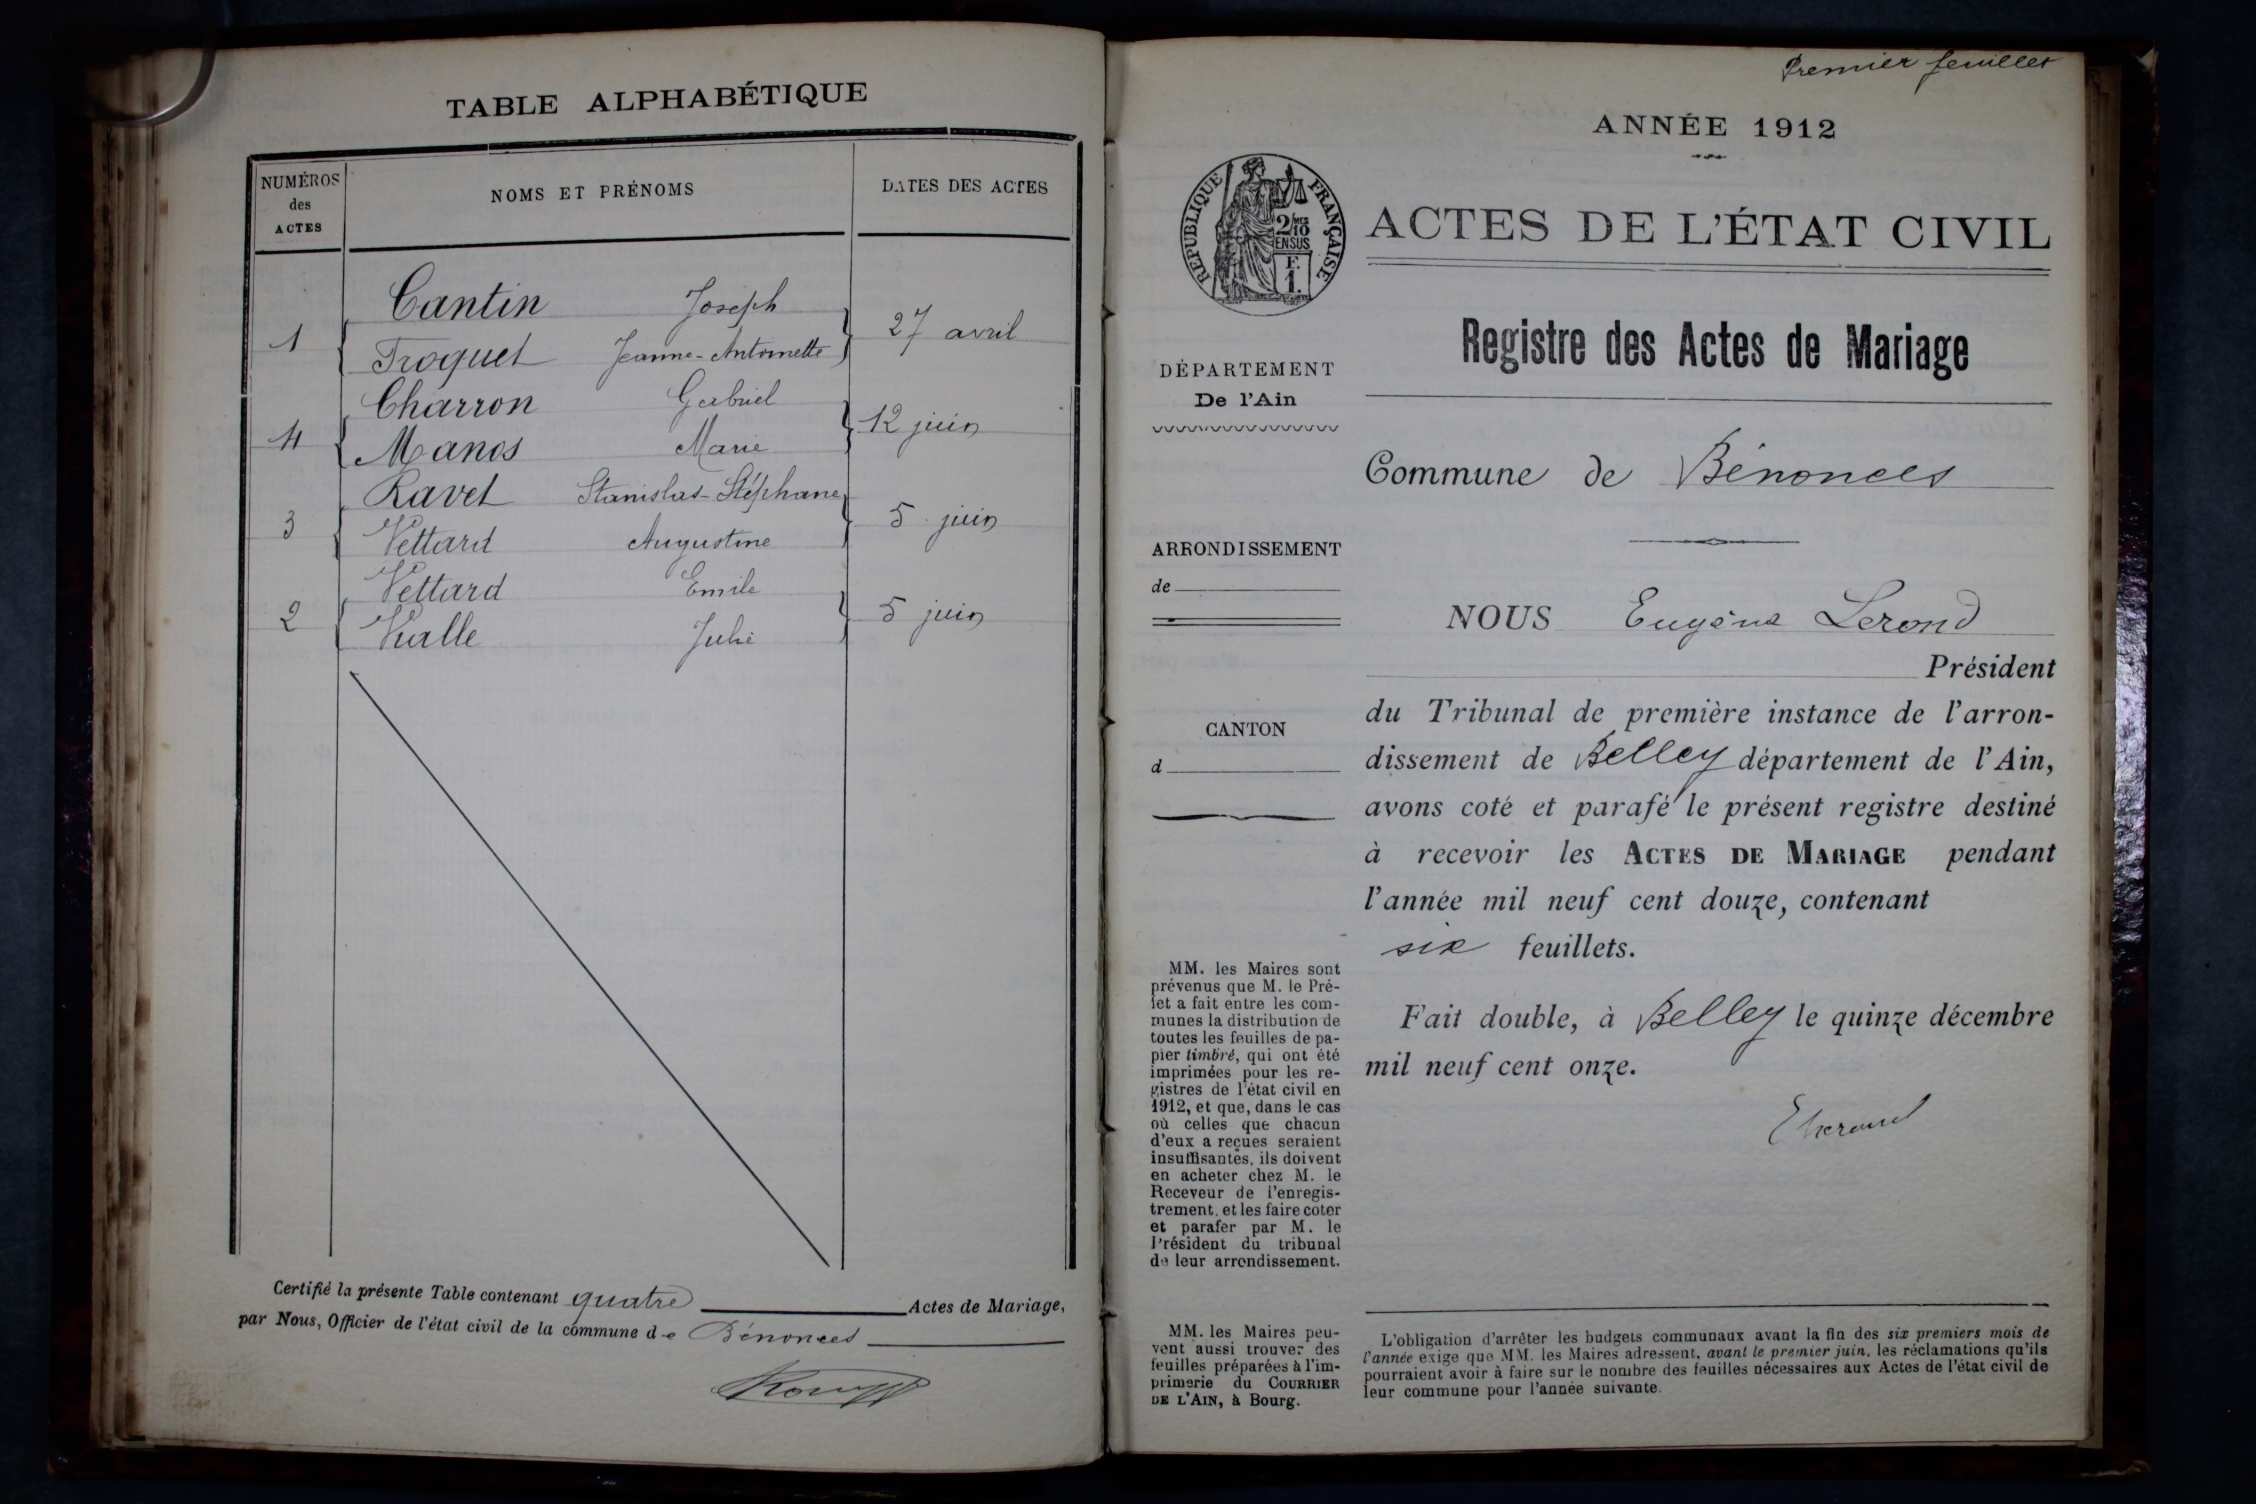 TABLE ALPHABÉTIQUE
NUMÉROS
des
ACTES
NOMS ET PRÉNOMS
DATES DES ACTES
Cantin Joseph
1 27 avril
Troquet Jeanne-Antoinette
Charron Gabriel
4 12 juin
Manos Marie
Ravet Stanislas-Stéphane
3 5 juin
Vettard Augustine
Vettard Emile
2 5 juin
Vialle Julie
Certifié la présente Table contenant quatre Actes de Mariage,
par Nous, Officier de l'état civil de la commune de Bénonces
Premier feuillet
ANNÉE 1912
RÉPUBLIQUE FRANÇAISE
2/10
EN SUS
F.
1.
ACTES DE L'ÉTAT CIVIL
Registre des Actes de Mariage
DÉPARTEMENT
De l'Ain
Commune de Bénonces
ARRONDISSEMENT
de
CANTON
d
NOUS Eugène Lerond
Président
du Tribunal de première instance de l'arron-
dissement de Belley département de l'Ain,
avons coté et parafé le présent registre destiné
à recevoir les ACTES DE MARIAGE pendant
l'année mil neuf cent douze, contenant
six feuillets.
Fait double, à Belley le quinze décembre
mil neuf cent onze.
MM. les Maires sont
prévenus que M. le Pré-
fet a fait entre les com-
munes la distribution de
toutes les feuilles de pa-
pier timbré, qui ont été
imprimées pour les re-
gistres de l'état civil en
1912, et que, dans le cas
où celles que chacun
d'eux a reçues seraient
insuffisantes, ils doivent
en acheter chez M. le
Receveur de l'enregis-
trement, et les faire coter
et parafer par M. le
Président du tribunal
de leur arrondissement.
MM. les Maires peu-
vent aussi trouver des
feuilles préparées à l'im-
primerie du COURRIER
DE L'AIN, à Bourg.
L'obligation d'arrêter les budgets communaux avant la fin des six premiers mois de
l'année exige que MM. les Maires adressent, avant le premier juin, les réclamations qu'ils
pourraient avoir à faire sur le nombre des feuilles nécessaires aux Actes de l'état civil de
leur commune pour l'année suivante.